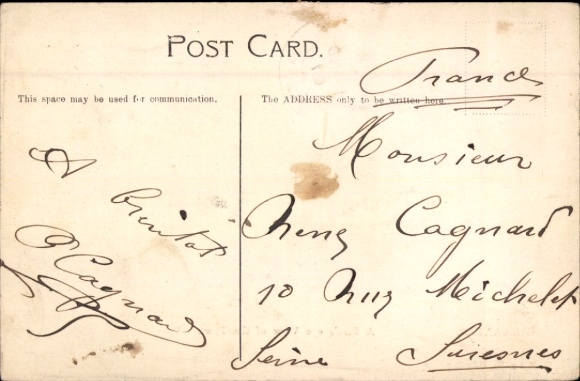 POST CARD.
This space may be used for communication.
The ADDRESS only to be written here.
A bientot
Cagnard
France
Monsieur
Cagnard
10 Rue Michelet
Seine Suresnes